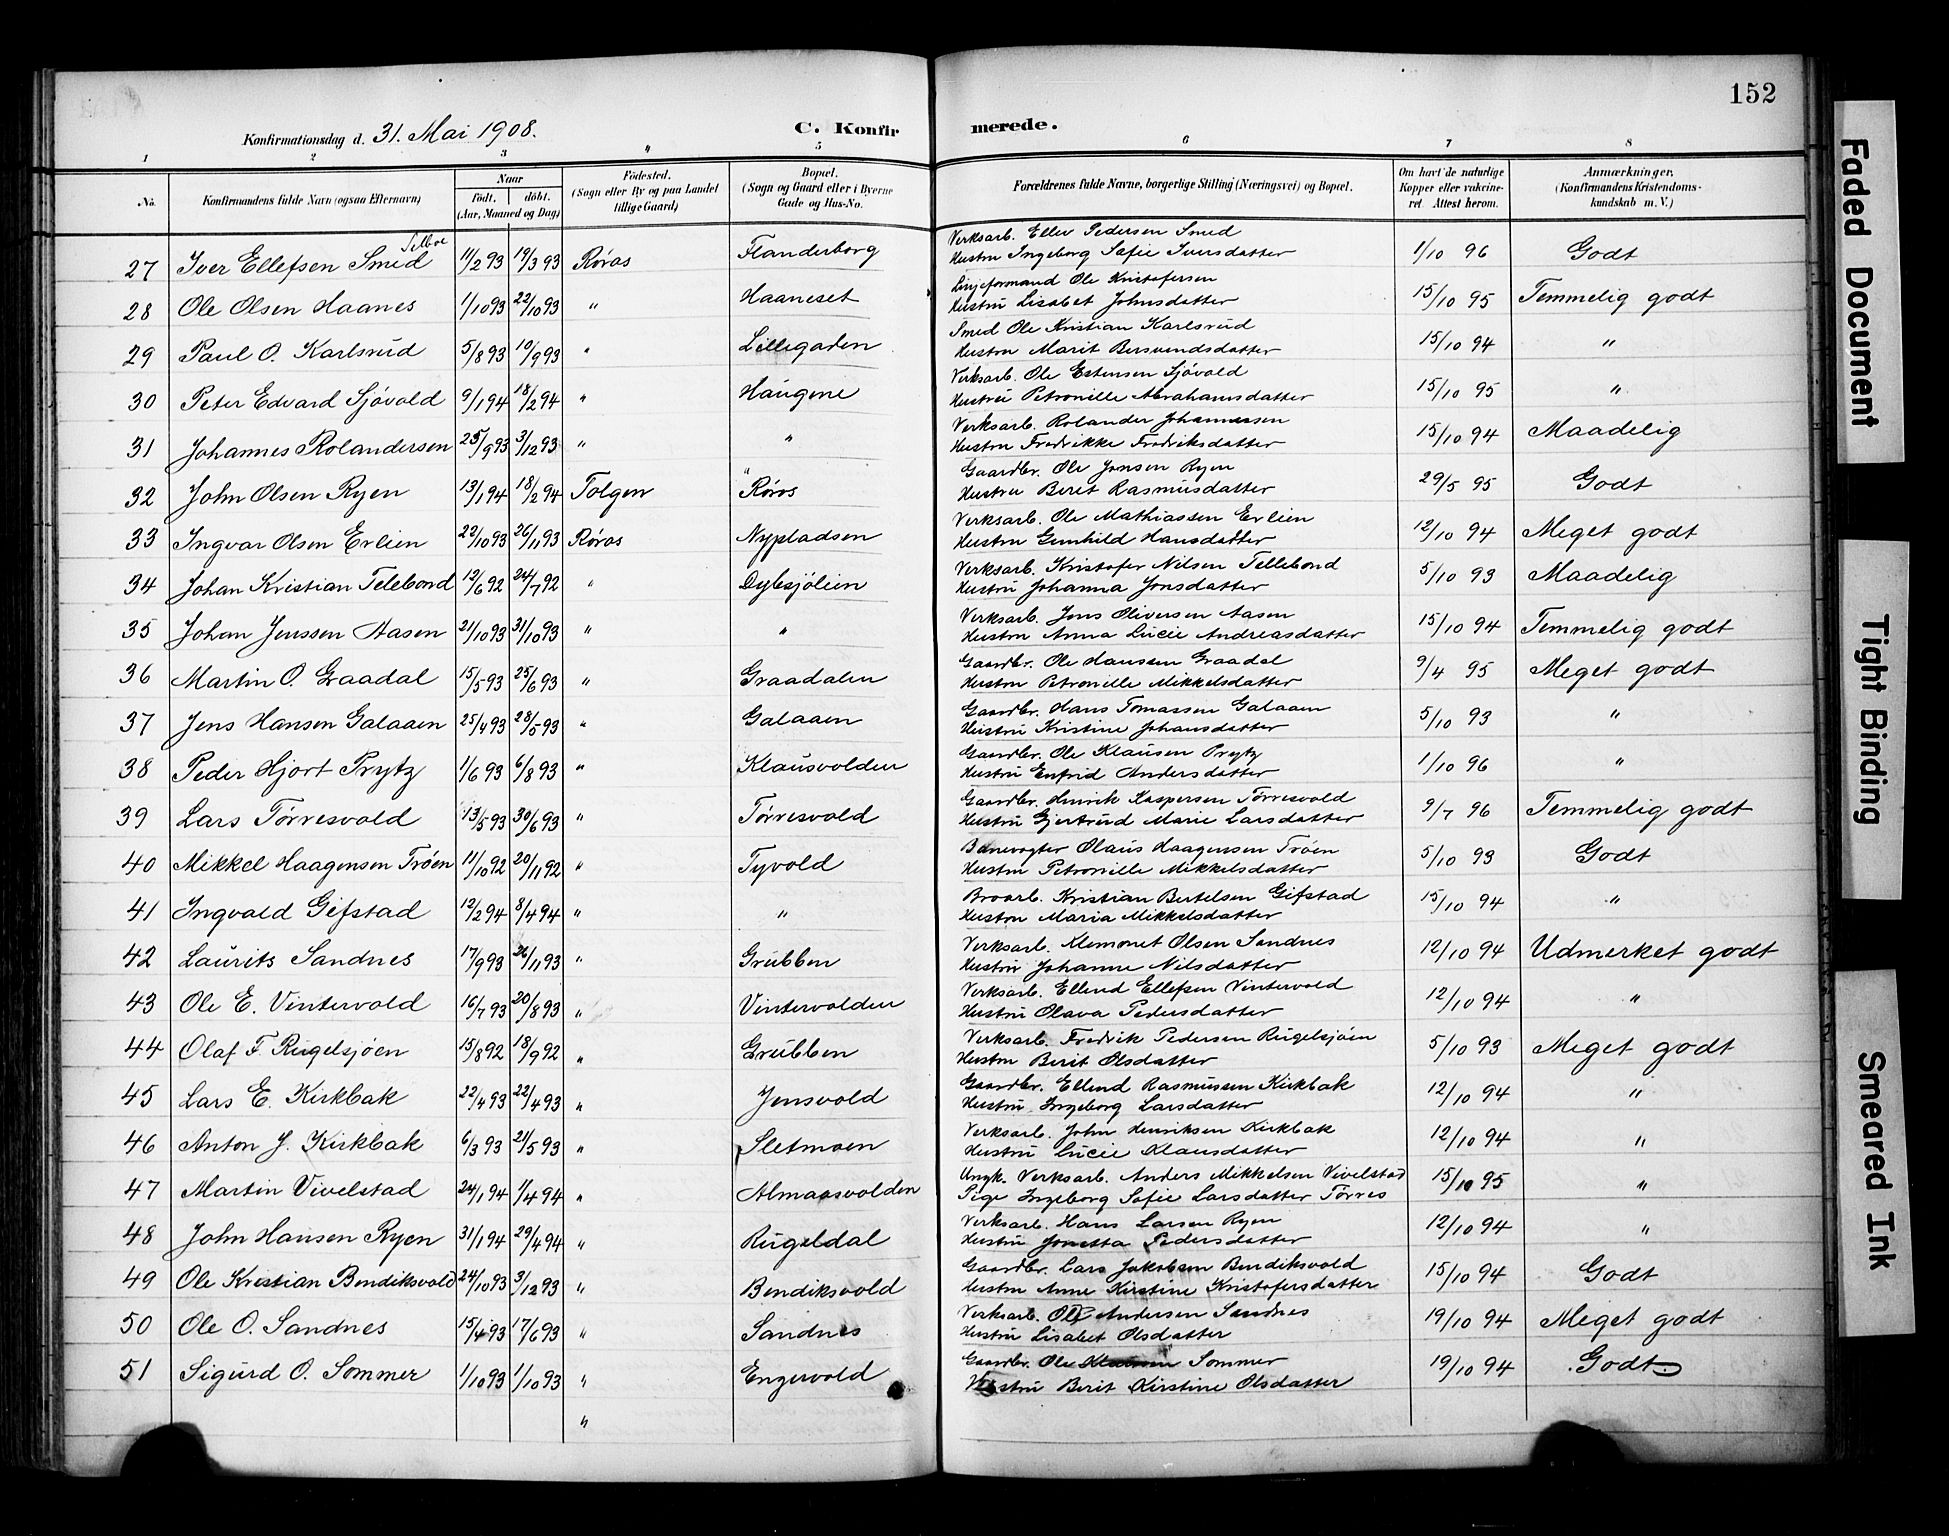 152
Konfirmationsdag d. 31. Mai 1908. C. Konfirmerede.
1 2 3 4 5 6 7 8
No. Konfirmandens fulde Navn (ogsaa Efternavn) Naar Født. døbt. (Aar, Maaned og Dag) Fødested. (Sogn eller By og paa Landet tillige Gaard) Bopæl. (Sogn og Gaard eller i Byerne Gade og Hus-No. Forældrenes fulde Navne, borgerlige Stilling (Næringsvei) og Bopæl. Om havt de naturlige Kopper eller vakcineret. Attest herom. Anmærkninger. (Konfirmandens Kristendomskundskab m. V.)
27 Iver Ellefsen Smed 11/2 93 19/3 93 Røros Flanderborg Verksarb. Ellev Pedersen Smed 1/10 96 Godt
Hustru Ingeborg Sofie Iversdatter
28 Ole Olsen Haanes 1/10 93 22/10 93 " Haaneset Linjeformand Ole Kristofersen 15/10 95 Temmelig godt
Hustru Lisabet Johnsdatter
29 Paul O. Karlsrud 5/8 93 10/9 93 " Lillegaden Smed Ole Kristian Karlsrud 15/10 94 "
Hustru Marit Bersvendsdatter
30 Peter Edvard Sjøvold 9/1 94 18/2 94 " Haugene Verksarb. Ole Estensen Sjøvold 15/10 95 "
Hustru Petronille Abrahamsdatter
31 Johannes Rolandersen 25/9 93 3/12 93 " " Verksarb. Rolander Johannessen 15/10 94 Maadelig
Hustru Fredrikke Fredriksdatter
32 John Olsen Ryen 13/1 94 18/2 94 Tolgen Røros Gaardbr. Ole Jonsen Ryen 29/5 95 Godt
Hustru Berit Rasmusdatter
33 Ingvar Olsen Erlien 22/10 93 26/11 93 Røros Nypladsen Verksarb. Ole Mathiassen Erlien 12/10 94 Meget godt
Hustru Gunhild Hansdatter
34 Johan Kristian Telebond 12/6 92 24/7 92 " Dybsjølien Verksarb. Kristofer Nilsen Tellebond 5/10 93 Maadelig
Hustru Johanna Jonsdatter
35 Johan Jenssen Aasen 21/10 93 31/10 93 " " Verksarb. Jens Oliversen Aasen 15/10 94 Temmelig godt
Hustru Anna Lucie Andreasdatter
36 Martin O. Graadal 15/5 93 25/6 93 " Graadalen Gaardbr. Ole Hanssen Graadal 9/4 95 Meget godt
Hustru Petronille Mikkelsdatter
37 Jens Hansen Galaaen 25/4 93 28/5 93 " Galaaen Gaardbr. Hans Tomassen Galaaen 5/10 93 "
Hustru Kristine Johansdatter
38 Peder Hjort Prytz 1/6 93 6/8 93 " Klausvolden Gaardbr. Ole Klausen Prytz 1/10 96 "
Hustru Enfrid Andersdatter
39 Lars Tørresvold 13/5 93 30/6 93 " Tørresvold Gaardbr. Henrik Kaspersen Tørresvold 9/7 96 Temmelig godt
Hustru Gjertrud Marie Larsdatter
40 Mikkel Haagensen Trøen 11/10 92 20/11 92 " Tyvold Banevogter Olaus Haagensen Trøen 5/10 93 Godt
Hustru Petronille Mikkelsdatter
41 Ingvald Gifstad 12/2 94 8/4 94 " " Broarb. Kristian Bertelsen Gifstad 15/10 94 "
Hustru Maria Mikkelsdatter
42 Laurits Sandnes 17/9 93 26/11 93 " Grubben Verksarb. Klemonet Olsen Sandnes 12/10 94 Udmerket godt
Hustru Johanne Nilsdatter
43 Ole E. Vintervold 16/7 93 20/8 93 " Vintervolden Verksarb. Ellend Ellefsen Vintervold 12/10 94 "
Hustru Olava Pedersdatter
44 Olaf F. Rugelsjøen 15/8 92 18/9 92 " Grubben Verksarb. Fredrik Pedersen Rugelsjøen 5/10 93 Meget godt
Hustru Berit Olsdatter
45 Lars E. Kirkbak 22/4 93 22/4 93 " Jensvold Gaardbr. Ellend Rasmussen Kirkbak 12/10 94 "
Hustru Ingeborg Larsdatter
46 Anton J. Kirkbak 6/3 93 21/5 93 " Sletmoen Verksarb. John Henriksen Kirkbak 12/10 94 "
Hustru Lucie Klausdatter
47 Martin Vivelstad 24/1 94 1/4 94 " Almaasvolden Ungk. Verksarb. Anders Mikkelsen Vivelstad 15/10 95 "
Pige Ingeborg Sofie Larsdatter Tørres
48 John Hansen Ryen 31/1 94 29/4 94 " Rugeldal Verksarb. Hans Larsen Ryen 12/10 94 "
Hustru Jonetta Pedersdatter
49 Ole Kristian Bendiksvold 24/10 93 3/12 93 " Bendiksvold Gaardbr. Lars Jakobsen Bendiksvold 15/10 94 Godt
Hustru Anne Kirstine Kristofersdatter
50 Ole O. Sandnes 15/4 93 17/6 93 " Sandnes Verksarb. Ole Andersen Sandnes 19/10 94 Meget godt
Hustru Lisabet Olsdatter
51 Sigurd O. Sommer 1/10 93 1/10 93 " Engevold Gaardbr. Ole Sommer 19/10 94 Godt
Hustru Berit Kirstine Olsdatter
"
Faded Document
Tight Binding
Smeared Ink